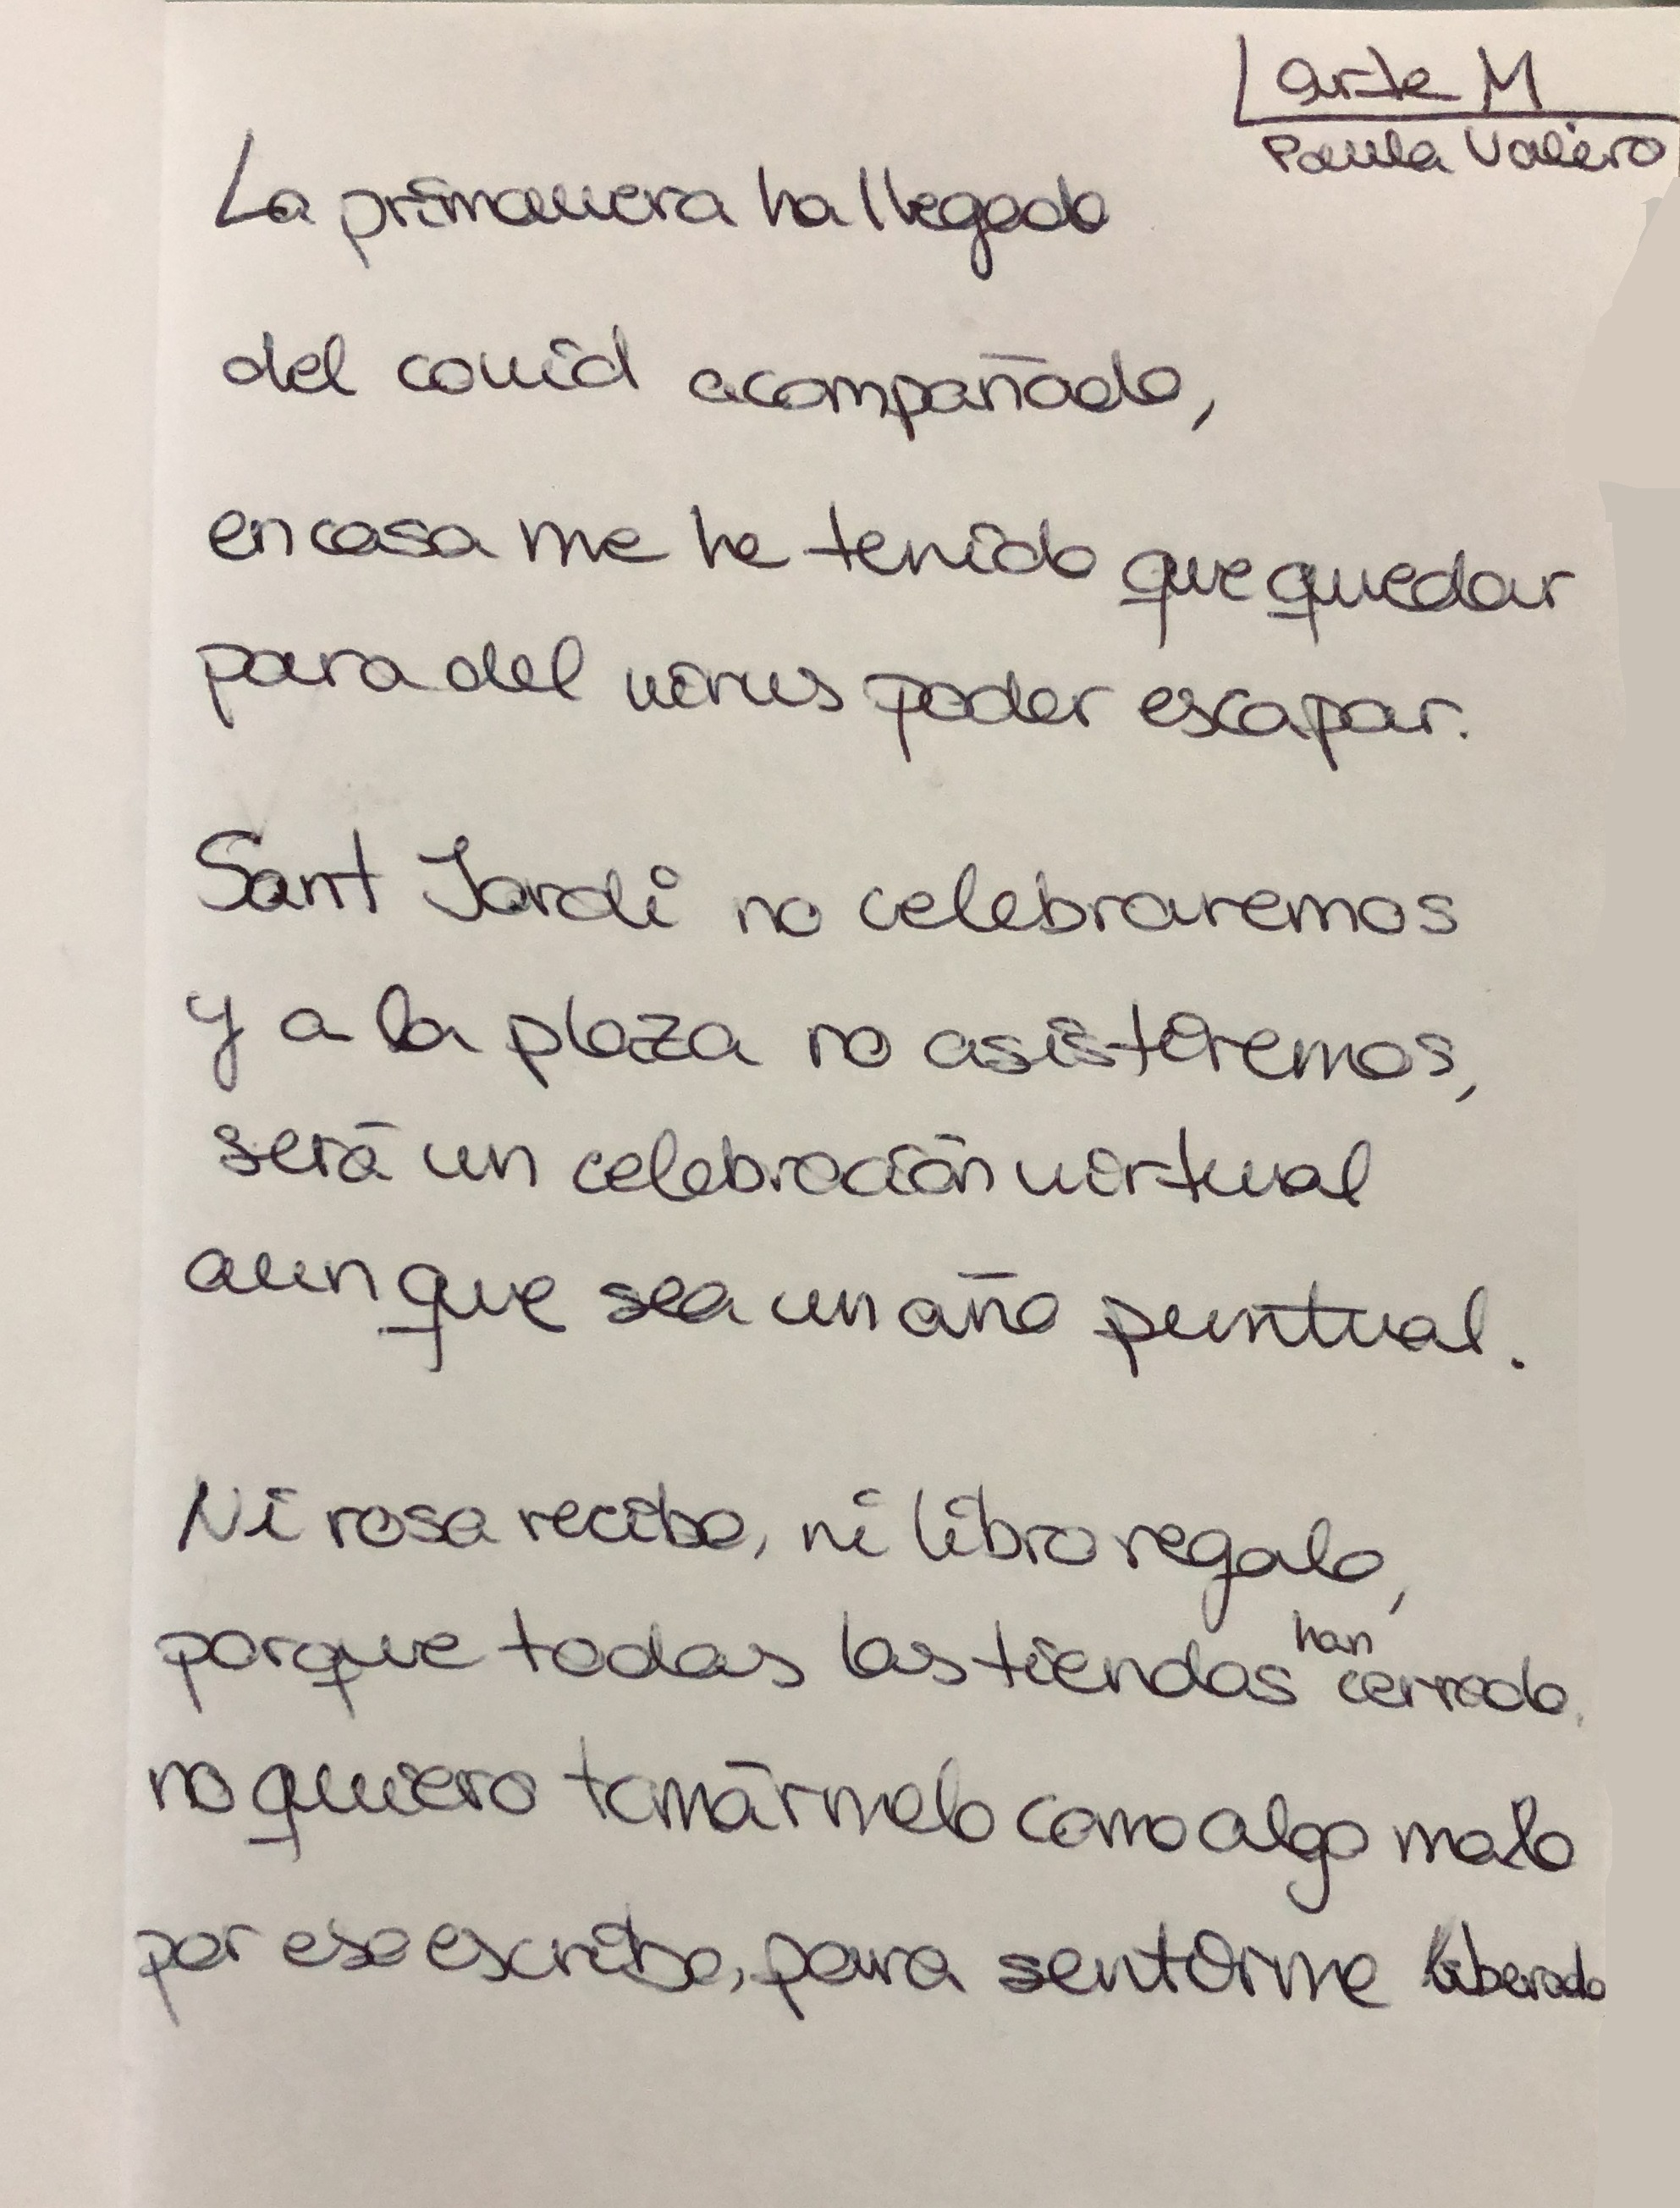 arte M
Paula Valero
La primavera ha llegado
del covid acompañado,
en casa me he tenido que quedar
para del virus poder escapar.
Sant Jordi no celebraremos
y a la plaza no asistiremos,
será un celebración virtual
aunque sea un año puntual.
Ni rosa recibo, ni libro regalo,
porque todas las tiendas han cerrado,
no quiero tomármelo como algo malo
por eso escribo, para sentirme liberado